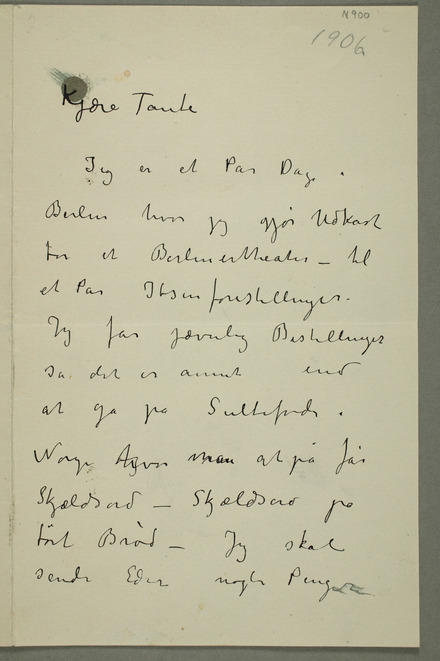 N 900
1906
Kjære Tante
Jeg er et Par Dage i
Berlin hvor jeg gjør Udkast
for et Berlinertheater – til
et Par Ibsenforestillinger.
Jeg får jævnlig Bestillinger
så det er annet end
at gå på Sultefode i
Norge hvor man atpå får
Skjældsord – Skjældsord på
tørt Brød – Jeg skal
sende Eder nogle Penge